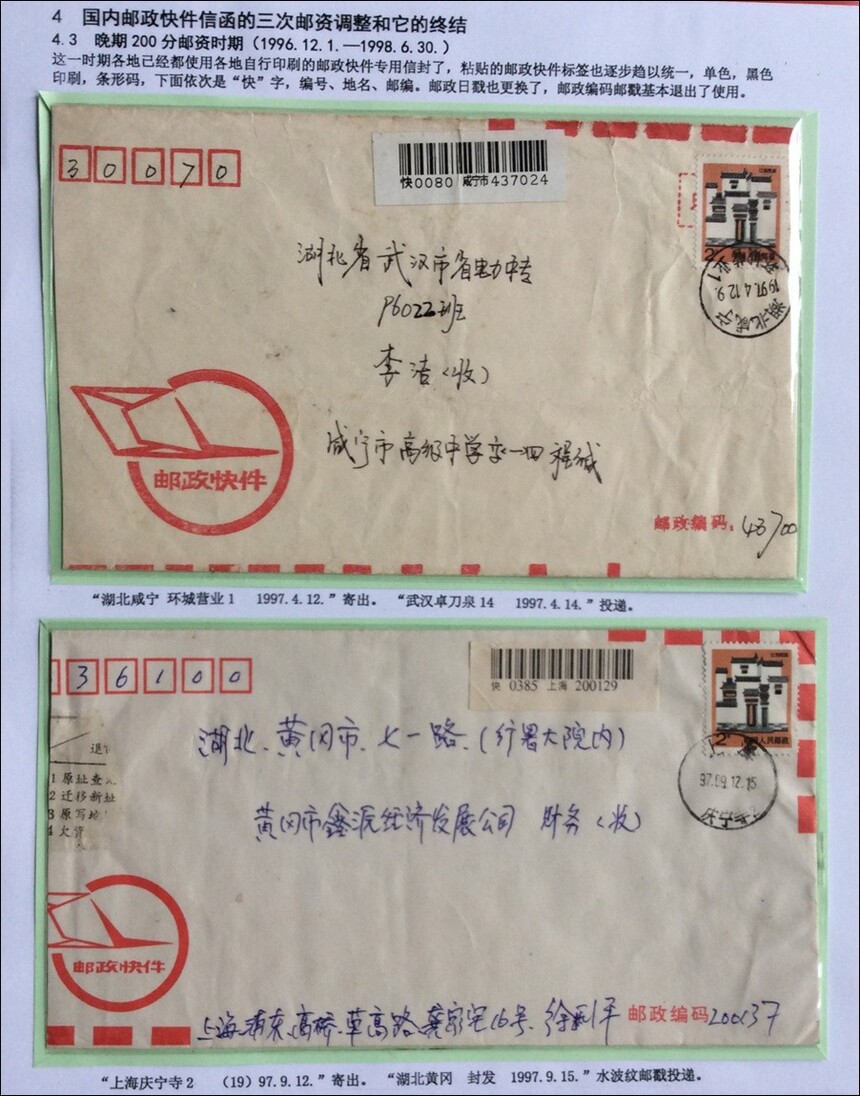 4 国内邮政快件信函的三次邮资调整和它的终结
4.3 晚期200分邮资时期（1996.12.1.—1998.6.30.）
这一时期各地已经都使用各地自行印刷的邮政快件专用信封了，粘贴的邮政快件标签也逐步趋以统一，单色，黑色
印刷，条形码，下面依次是“快”字，编号、地名、邮编。邮政日戳也更换了，邮政编码邮戳基本退出了使用。
30070
快0080 咸宁市437024
湖北省武汉市省电力中专
P6022班
李洁（收）
咸宁市高级中学
邮政快件
邮政编码：43700
湖北咸宁
1997.4.12.9.
“湖北咸宁 环城营业1 1997.4.12.”寄出。 “武汉卓刀泉14 1997.4.14.”投递。
36100
快 0385 上海 200129
湖北、黄冈市、七一路、（行署大院内）
黄冈市鑫派经济发展公司 财务（收）
中国人民邮政
97.09.12.15
庆宁寺
退
1 原址查
2 迁移新址
3 原写地
4 欠资
邮政快件
上海浦东、高桥、草高路、龚家宅16号、徐 平
邮政编码200137
“上海庆宁寺2 （19）97.9.12.”寄出。 “湖北黄冈 封发 1997.9.15.”水波纹邮戳投递。